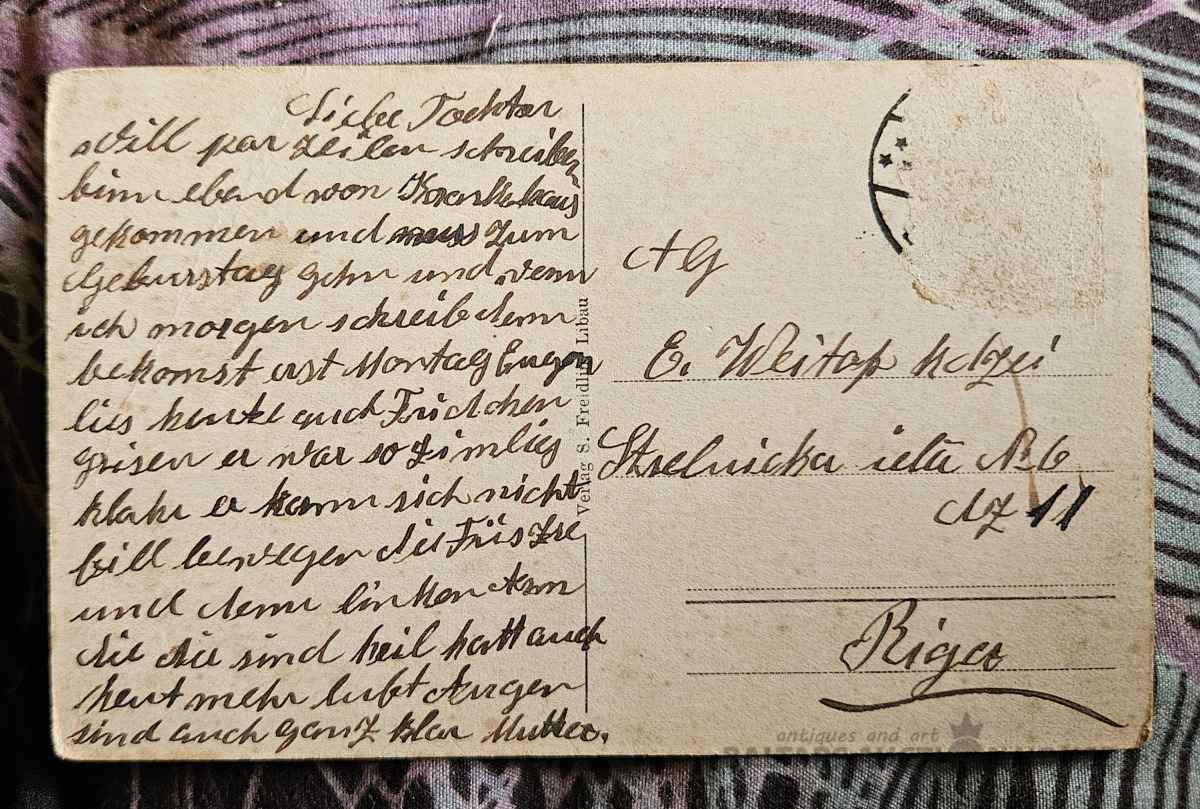 Liebe Tochter
Will par Zeilen schreiben
binn eben von Krankehaus
gekommen und muss zum
Geburstag gehn und wenn
ich morgen schreib denn
bekomst erst Montag Eugen
lies heute auch Fridchen
grisen er war so zimlig
klahr er kann sich nicht
fill bewegen die Füs Zre
und denn linken Arm
die die sind heil hatt auch
heut mehr luft Augen
sind auch ganz klar Mutter.
Verlag S. Freidlin, Libau
AG
E. Weitap kdzei
Strelnieku iela № 6
dz 11
Riga
antiques and art